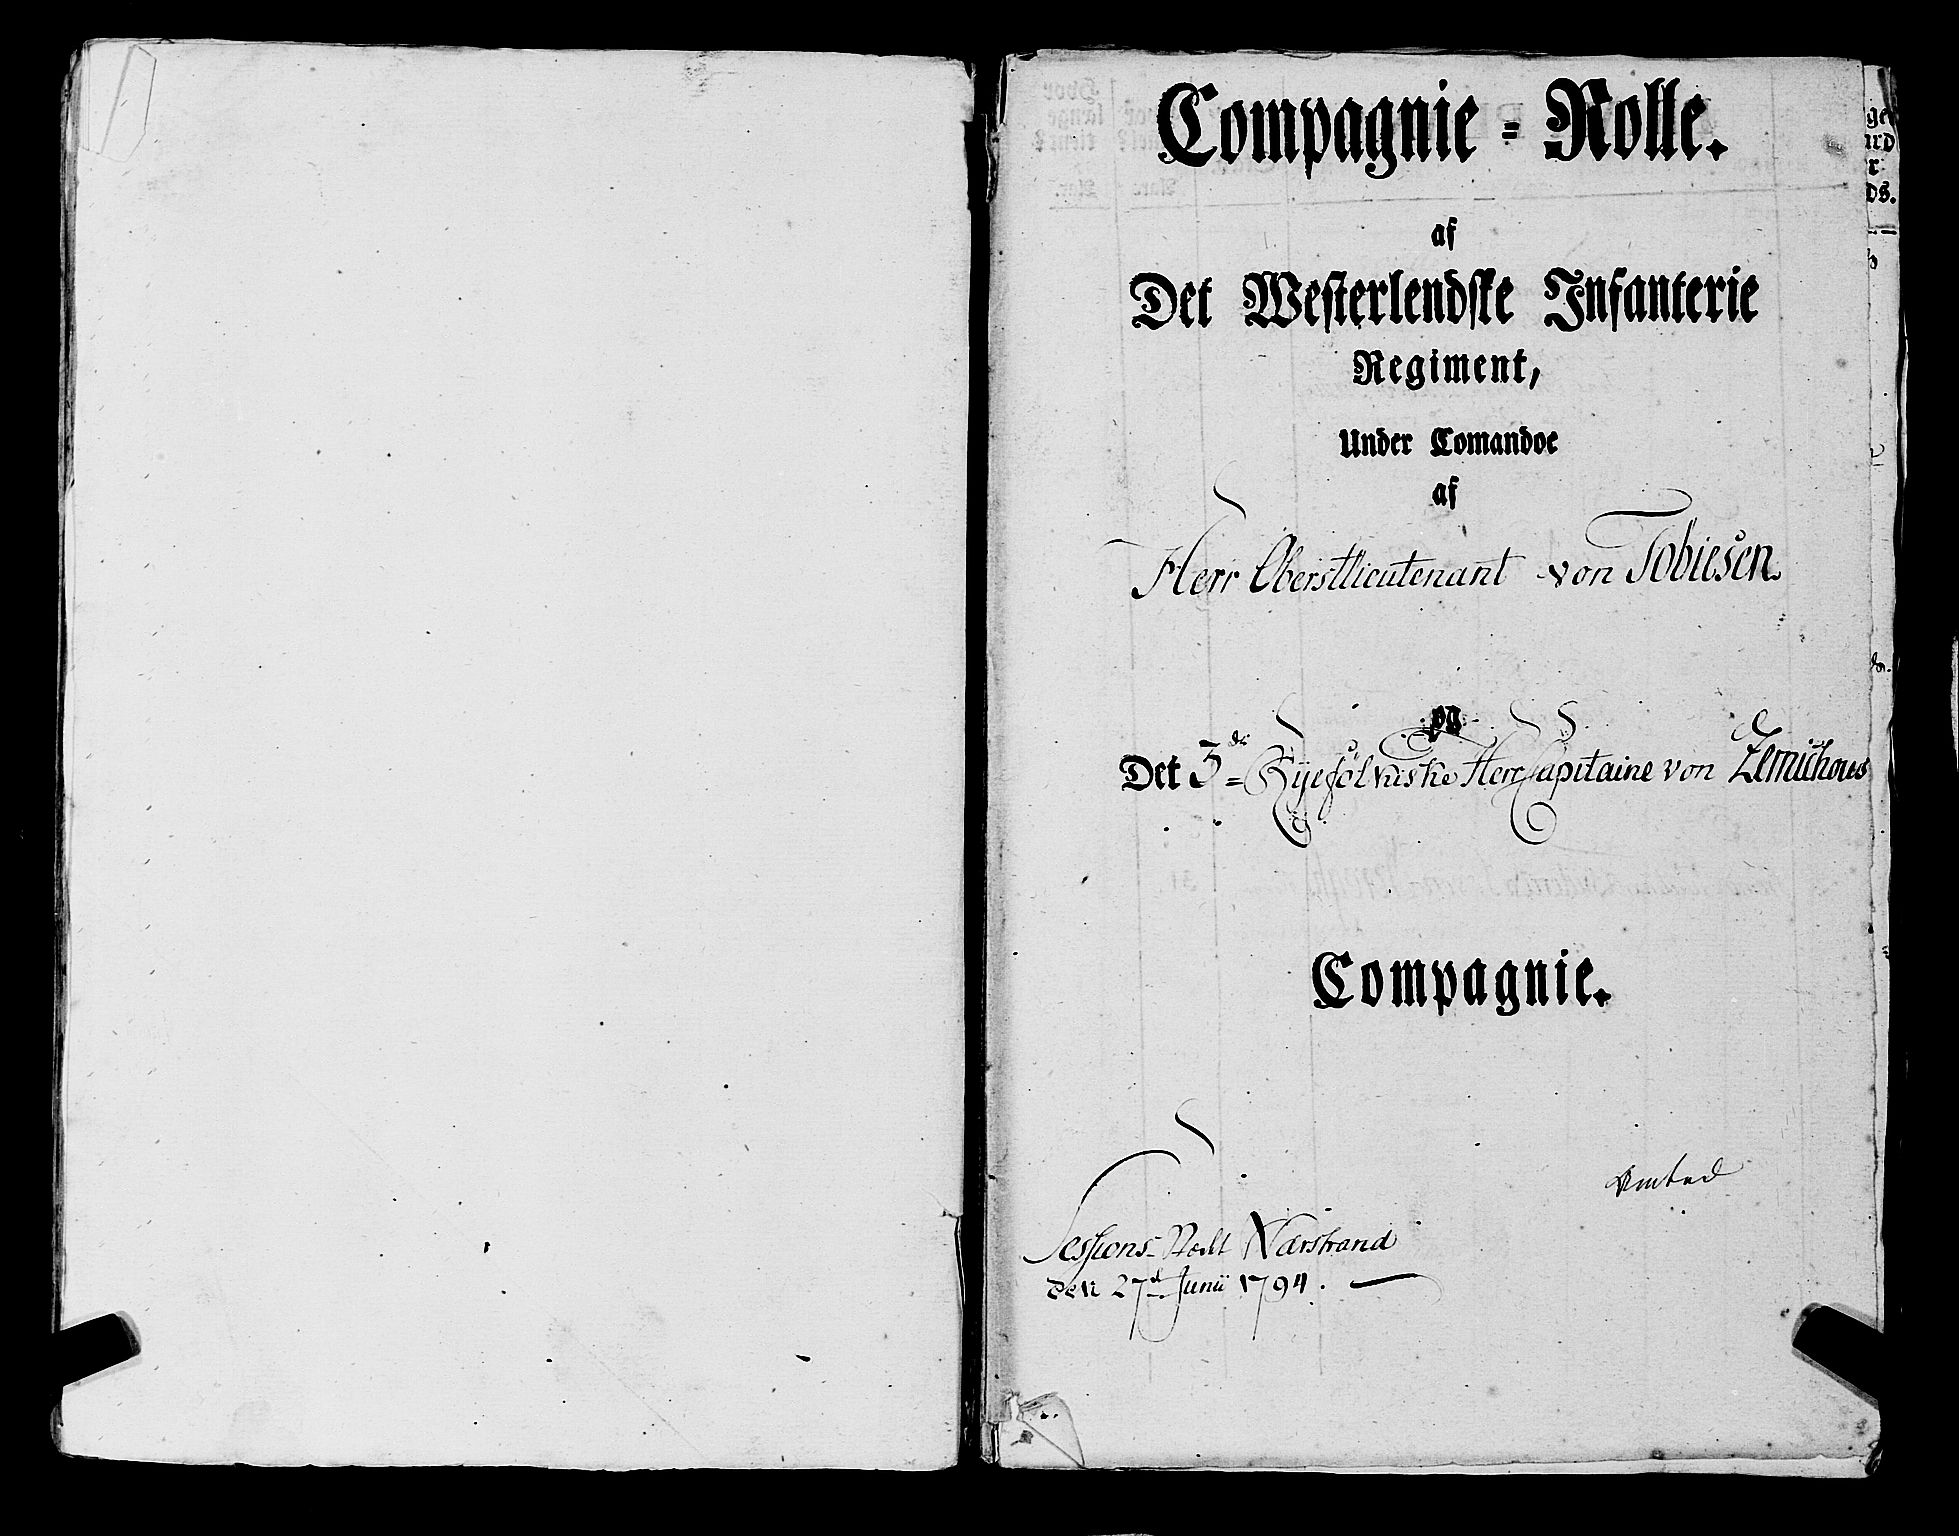 Compagnie = Rolle.
af
Det Westerlendske Infanterie
Regiment,
Under Comandoe
af
Herr Oberstlieutenant von Tobiesen.
og
Det 3de Ryefölkiske Herr Capitaine von
Compagnie.
Sessions- Nærstrand
den 27d Junii 1794.